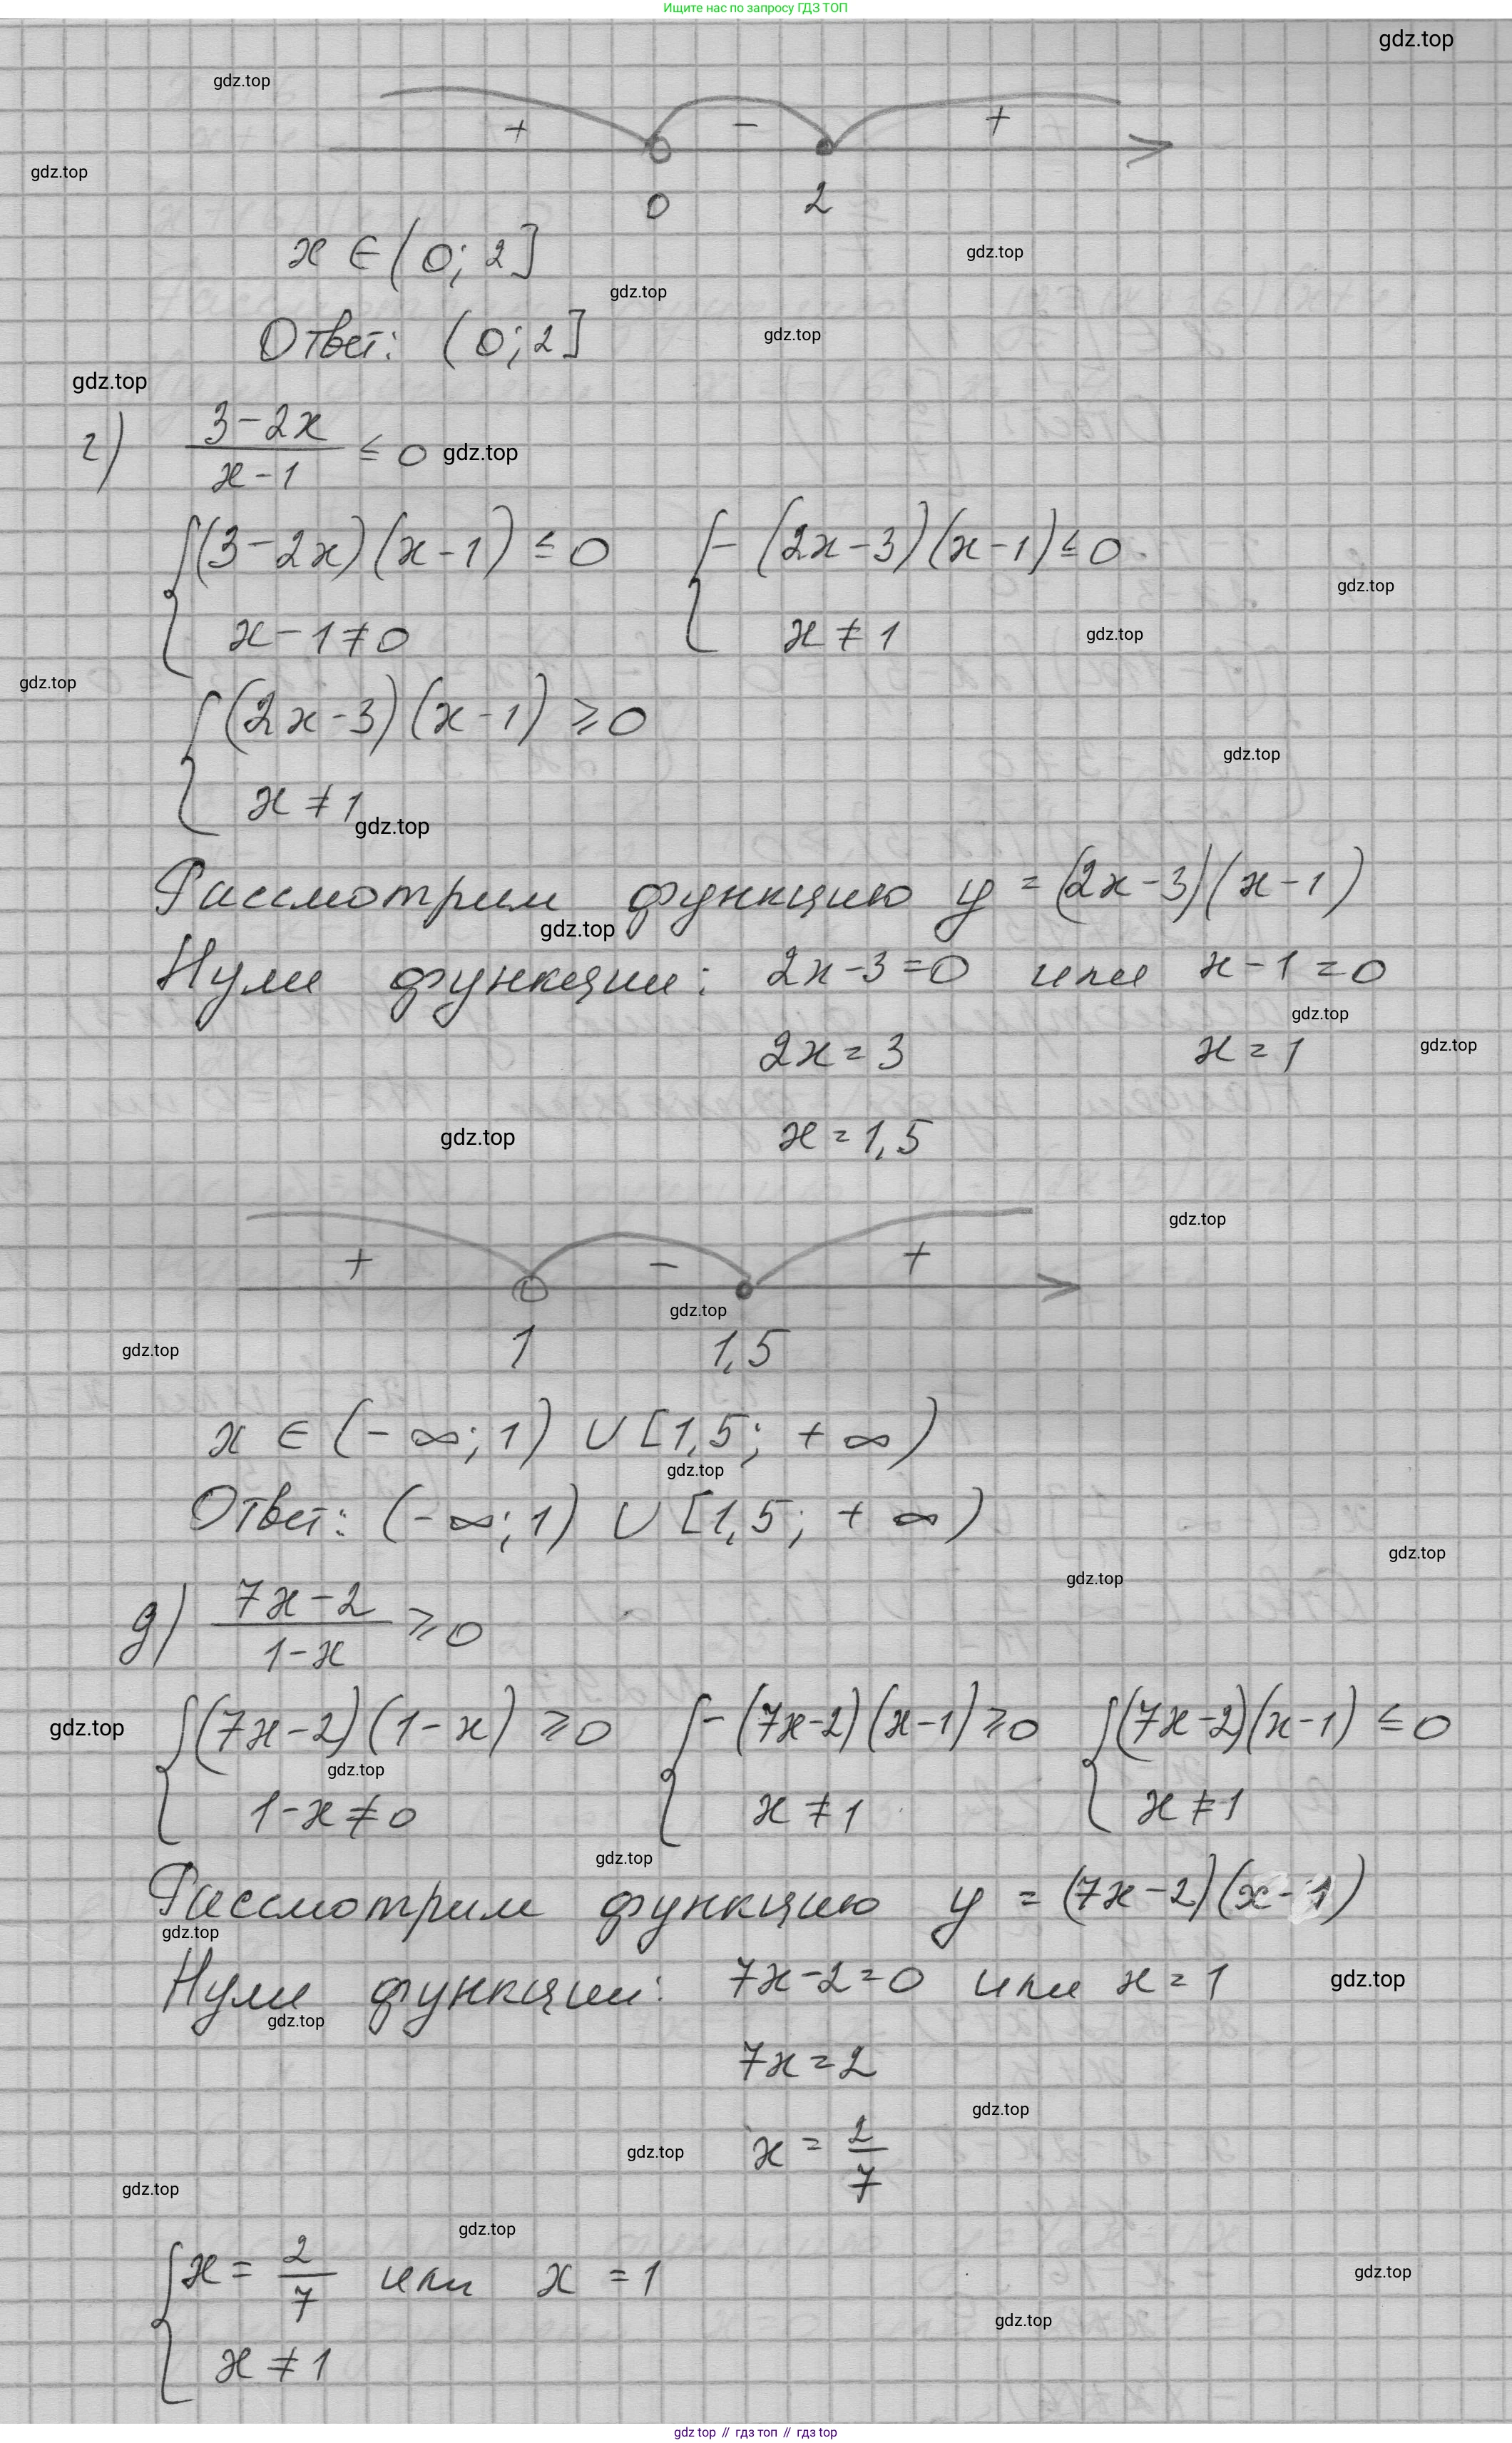 Ищите нас по запросу ГДЗ ТОП
gdz.top
gdz.top
+ − +
gdz.top
0 2
x ∈ (0; 2]
gdz.top
gdz.top
Ответ: (0; 2]
gdz.top
gdz.top
г) (3−2x)/(x−1) ≤ 0
gdz.top
{(3−2x)(x−1) ≤ 0 {−(2x−3)(x−1) ≤ 0
gdz.top
x−1≠0 x ≠ 1
gdz.top
gdz.top
{(2x−3)(x−1) ≥ 0
gdz.top
x ≠ 1
gdz.top
Рассмотрим функцию y = (2x−3)(x−1)
gdz.top
Нули функции: 2x−3=0 или x−1=0
gdz.top
2x=3 x=1
gdz.top
gdz.top
x=1,5
gdz.top
+ − +
gdz.top
gdz.top
1 1,5
x ∈ (−∞; 1) ∪ [1,5; +∞)
gdz.top
Ответ: (−∞; 1) ∪ [1,5; +∞)
gdz.top
gdz.top
д) (7x−2)/(1−x) ≥ 0
{(7x−2)(1−x) ≥ 0 {−(7x−2)(x−1) ≥ 0 {(7x−2)(x−1) ≤ 0
gdz.top
gdz.top
1−x≠0 x ≠ 1 x ≠ 1
gdz.top
Рассмотрим функцию y = (7x−2)(x−1)
gdz.top
Нули функции: 7x−2=0 или x=1
gdz.top
gdz.top
7x=2
gdz.top
gdz.top
x = 2/7
gdz.top
gdz.top
{x = 2/7 или x = 1
gdz.top
gdz.top
x ≠ 1
gdz.top // гдз топ // гдз top